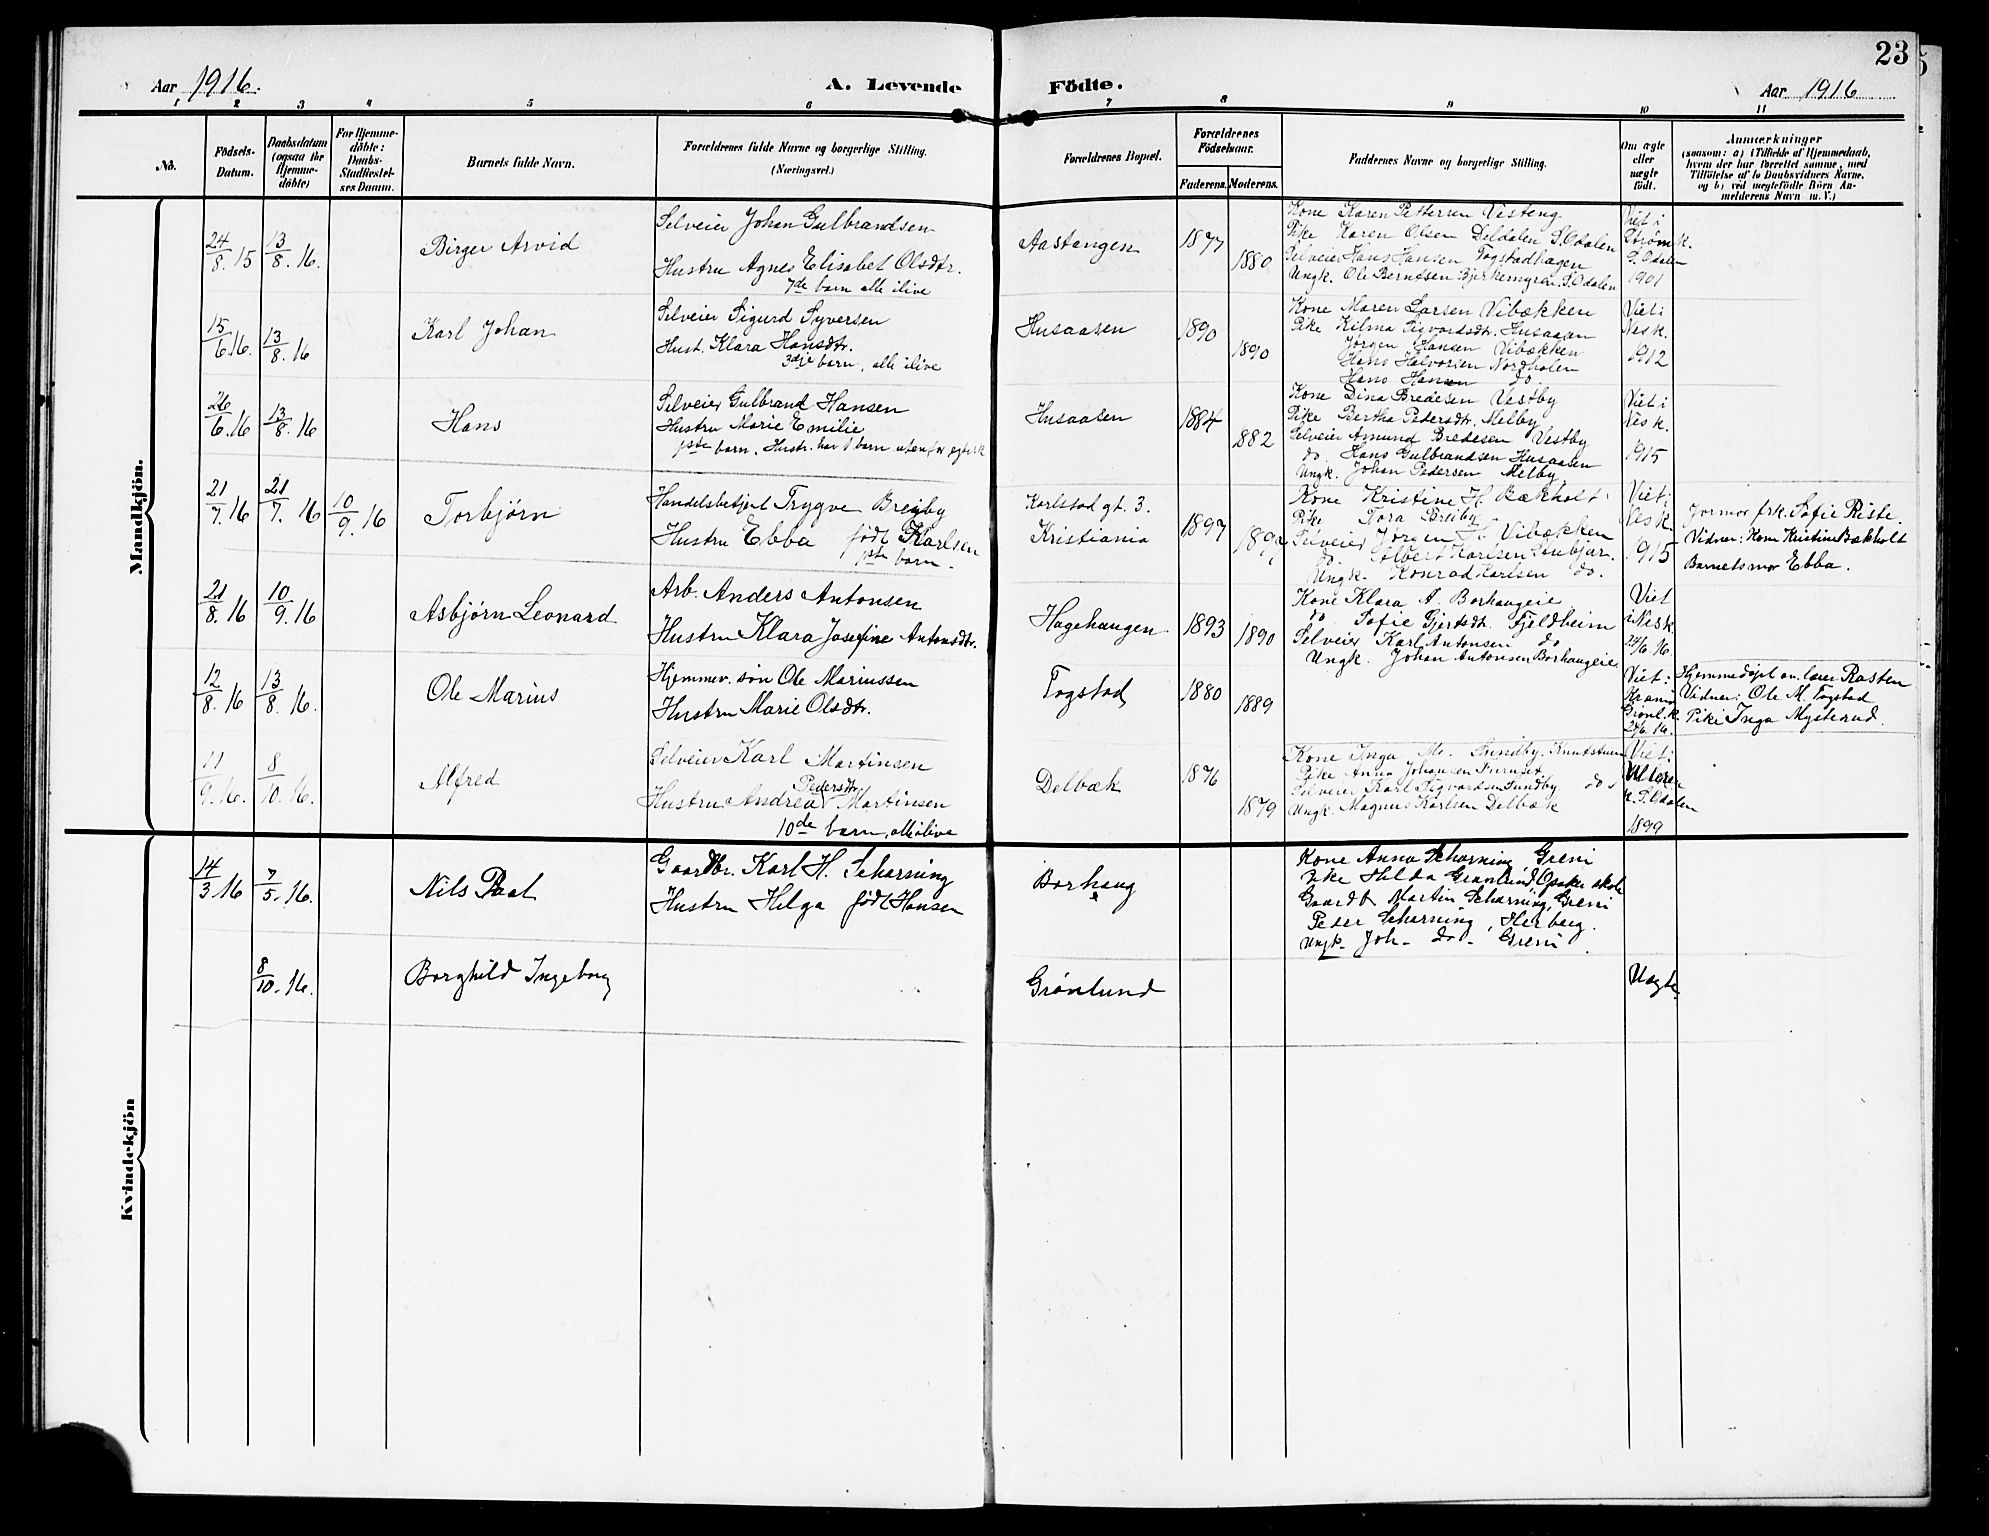 23
Aar 1916.
A. Levende
Födte.
Aar 1916
1 2 3 4 5 6 7 8 9 10 11
No.
Födsels-Datum.
Daabsdatum (ogsaa for Hjemme-döbte)
For Hjemme-döbte: Daabs-Stadfæstel-ses Datum.
Barnets fulde Navn.
Forældrenes fulde Navne og borgerlige Stilling. (Næringsvei.)
Forældrenes Bopæl.
Forældrenes Födselsaar.
Faderens. Moderens.
Faddernes Navne og borgerlige Stilling.
Om ægte eller uægte födt.
Anmærkninger
(saasom: a) i Tilfælde af Hjemmedaab, hvem der har forrettet samme, med Tilföielse af to Daabsvidners Navne, og b) ved uægtefödte Börn An-melderens Navn m. V.)
Mandkjön.
24/8. 15 13/8. 16. Birger Arvid
Selveier Johan Gulbrandsen
Hustru Agnes Elisabet Olsdtr.
7de barn alle ilive
Aastangen 1877 1880
Kone Karen Pettersen Vesteng
Pike Karen Olsen Deldalen S. Odalen
Selveier Hans Hansen Togstadhagen
Ungk. Ole Berntsen Bjerkemyren. S. Odalen
Viet i
Strøm k.
S. Odalen
1901
15/6 16. 13/8. 16 Karl Johan
Selveier Sigurd Syversen
Hust. Klara Hansdtr.
3dje barn, alle ilive
Husaasen 1890 1890
Kone Maren Larsen Vibækken
Pike Hilma Sigvardsdtr. Husaasen
Jørgen Hansen Vibækken
Hans Halvorsen Nordholen
Hans Hansen do.
Viet i
Nes k.
1912
26/6. 16 13/8. 16 Hans
Selveier Gulbrand Hansen
Hustru Marie Emilie
1ste barn. Hustr. har 1 barn utenfor egtesk
Husaasen 1884 882
Kone Dina Bredesen Vestby
Pike Bertha Pedersdtr. Melby
Selveier Amund Bredesen Vestby
do. Hans Gulbrandsen Husaasen
Ungk. Johan Pedersen Melby
Viet i
Nes k.
1915
21/7. 16 21/7. 16 10/9. 16 Torbjørn
Handelsbetjent Trygve Breiby
Hustru Ebba født Karlsen
1ste barn.
Karlstad gt. 3.
Kristiania 1897
Kone Kristine H. Bækholt
Pike Tora Breiby
Selveier Jørgen H. Vibækken
do. Albert Karlsen
Ungk. Konrad Karlsen do.
Viet i
Nes k.
1915
Jormor frk. Sofie Riste.
Vidner: Kone Kristine Bækholt
Barnets mor Ebba.
21/8. 16 10/9. 16 Asbjørn Leonard
Arb. Anders Antonsen
Hustru Klara Josefine Antonsdtr.
Hagehaugen 1893 1890
Kone Klara A. Borhaugeie
do. Sofie Gjertsdtr. Fjeldheim
Selveier Karl Antonsen do
Ungk. Johan Antonsen Borhaugeie
Viet
i Nes k.
24/6. 16.
12/8. 16 13/8. 16. Ole Marius
Hjemmev. søn Ole Mariussen
Hustru Marie Olsdtr.
Togstad 1880 1889
Viet i
Kr.ania
Grønl. k.
24/6. 16.
Hjemmedøpt av lærer Rasten
Vidner: Ole M. Togstad
Pike Inga Mysterud.
11/9. 16. 8/10. 16. Alfred
Selveier Karl Martinsen
Pedersdtr.
Hustru Andrea Martinsen
10de barn, alle ilive
Delbæk 1876 1879
Kone Inga M. Sundby. Knutstuen
Pike Anna Johansen Furuset
Selveier Karl Sigvardsen Sundby do
Ungk. Magnus Karlsen Delbæk
Viet i
Ulleren
k. S. Odalen
1899
Kvindekjön
14/3. 16 7/5. 16. Nils Paal
Gaardbr. Karl H. Scharning
Hustru Helga født Hansen
Borhaug
Kone Anna Scharning, Greni
Pike Hilda Grønlund, Opaker skole
Gaardb. Martin Scharning, Greni
Peder Scharning, Herberg.
Ungk. Joh. do. Greni.
8/10. 16. Borghild Ingeborg
Grønlund
Uegte.